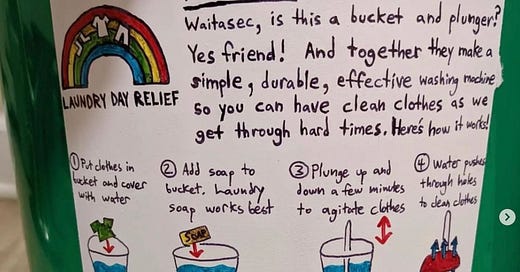 Waitasec, is this a bucket and plunger?
Yes friend! And together they make a
simple, durable, effective washing machine
so you can have clean clothes as we
get through hard times. Here's how it works!
LAUNDRY DAY RELIEF
① Put clothes in
bucket and cover
with water
② Add soap to
bucket. Laundry
soap works best
③ Plunge up and
down a few minutes
to agitate clothes
④ Water pushes
through holes
to clean clothes
SOAP